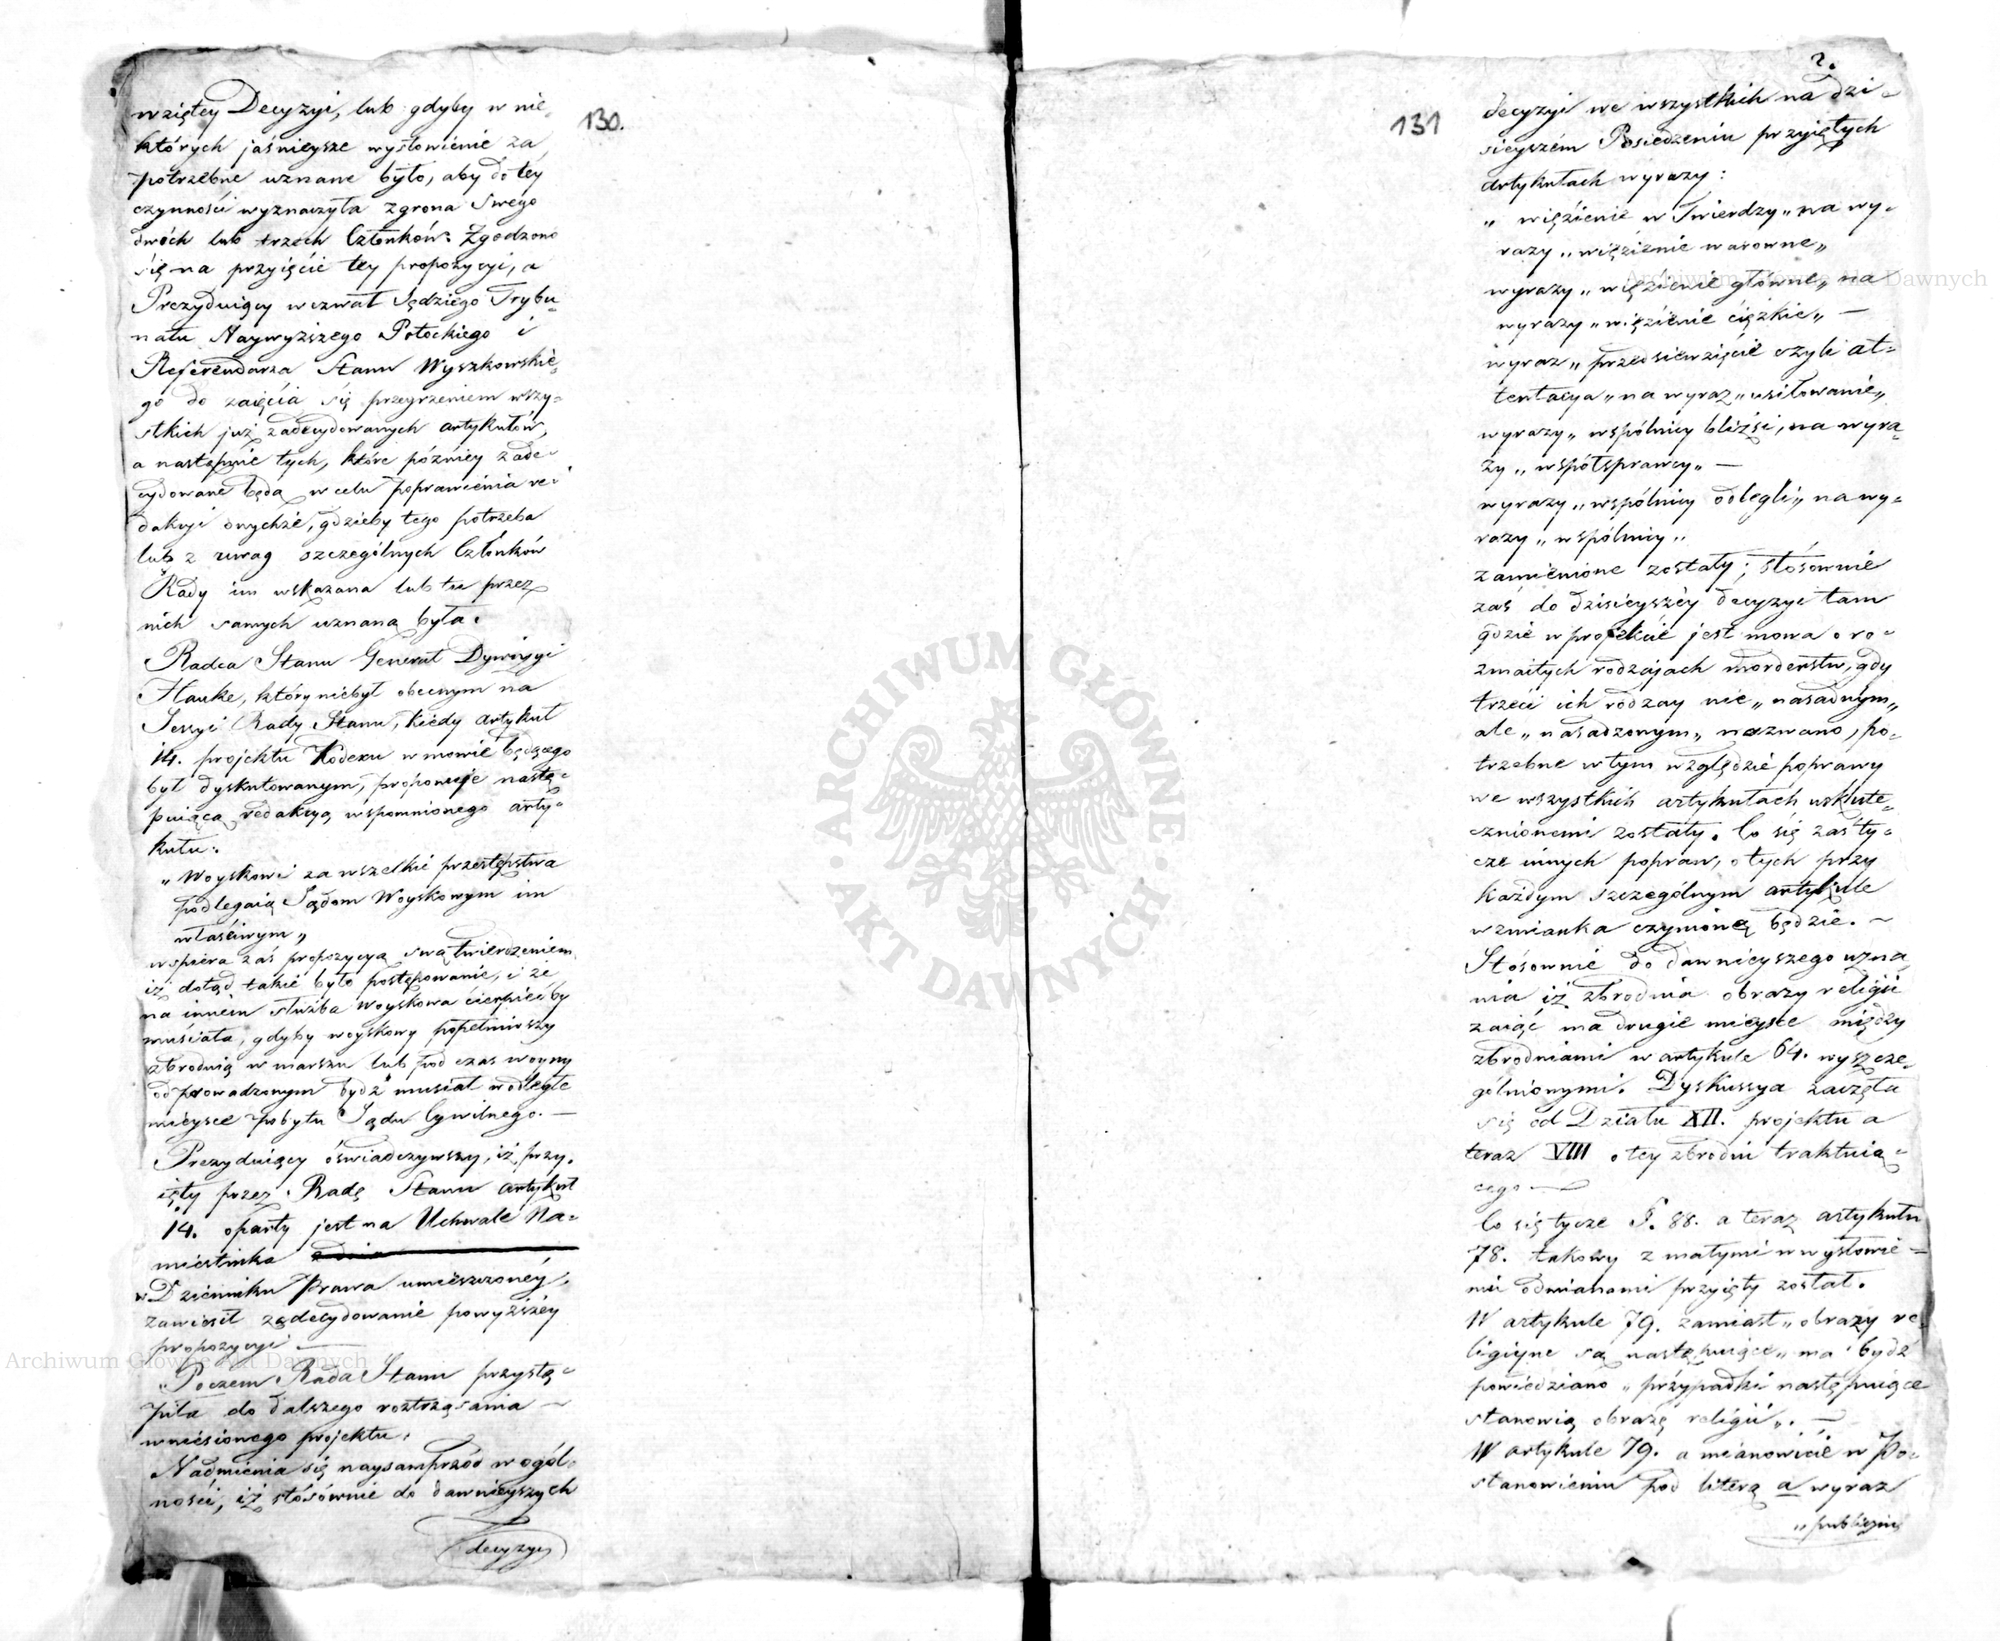 130.
wziętey Decyzyi, lub gdyby w nie
których jaśnieysze wysłowienie za
potrzebne uznane było, aby do tey
czynności wyznaczyła z grona Swego
dwóch lub trzech Członków. Zgodzono
się na przyięcie tey propozycyi, a
Prezyduiący wezwał Sędziego Trybu=
nału Naywyższego Potockiego i
Referendarza Stanu Wyszkowskie=
go do zaięcia się przeyrzeniem wszy=
stkich już zadecydowanych artykułów,
a następnie tych, które późniey zade=
cydowane będą w celu poprawienia re=
dakcyi onychże, gdzieby tego potrzeba
lub z uwag szczególnych Członków
Rady im wskazana lub też przez
nich samych uznaną była.
Radca Stanu Generał Dywizyi
Hauke, który niebył obecnym na
Sessyi Rady Stanu, kiedy artykuł
14. projektu Kodexu w mowie będącego
był dyskutowanym, proponuje nastę=
puiącą redakcyą wspomnionego arty=
kułu.
„Woyskowi za wszelkie przestępstwa
podlegaią Sądom Woyskowym im
właściwym„
wspiera zaś propozycyą swą twierdzeniem
iż dotąd takie było postępowanie, i że
na innem służba woyskowa cierpiećby
musiała, gdyby woyskowy popełniwszy
zbrodnią w marszu lub pod czas woyny
odprowadzonym bydź musiał w odległe
mieysce pobytu Sądu Cywilnego. —
Prezyduiący oświadczywszy, iż przy=
ięty przez Radę Stanu artykuł
14. oparty jest na Uchwale Na=
miestnika
w Dzienniku Prawa umieszczoney,
zawiesił zadecydowanie powyższey
propozycyi —
Poczem Rada Stanu przystą=
piła do dalszego roztrząsania —
wniesionego projektu.
Nadmienia się naysamprzód w ogól=
ności, iż stósównie do dawnieyszych
decyzyi
2.
131
decyzyi we wszystkich na dzi=
sieyszém Posiedzeniu przyiętych
artykułach wyrazy:
„ więzienie w Twierdzy„ na wy=
razy „więzienie warowne„
wyrazy „więzienie główne„ na
wyrazy „więzienie ciężkie„ —
wyraz „przedsięwzięcie czyli at=
tentacya„ na wyraz „usiłowanie„
wyrazy „wspólnicy bliżsi, na wyra=
zy „współsprawcy„ —
wyrazy „wspólnicy odlegli„ na wy=
razy „wspólnicy„
zamienione zostały; stósownie
zaś do dzisieyszéy decyzyi tam
gdzie w projekcie jest mowa o ro=
zmaitych rodzajach morderstw, gdy
trzeci ich rodzay nie „nasadnym„
ale „nasadzonym„ nazwano, po=
trzebne w tym względzie poprawy
we wszystkich artykułach uskute=
cznionemi zostały. Co się zaś ty=
cze innych popraw, o tych przy
każdym szczególnym artykule
wzmianka czynioną będzie. —
Stósownie do dawnieyszego uzna
nia iż zbrodnia obrazy religii
zaiąć ma drugie mieysce między
zbrodniami w artykule 64. wyszcze=
gólnionymi. Dyskussya zaczęła
się od Działu XII. projektu a
teraz VIII o tey zbrodni traktuią=
cego —
Co się tycze §. 88. a teraz artykułu
78. takowy z małymi w wysłowie=
niu odmianami przyięty został.
W artykule 79. zamiast „obrazy re=
ligiyne są następuiące„ ma bydź
powiedziano „przypadki następuiące
stanowią obrazę religii„. —
W artykule 79. a mianowicie w Po=
stanowieniu pod literą a wyraz
„publicznie
ARCHIWUM GŁÓWNE AKT DAWNYCH
Archiwum Główne Akt Dawnych
Archiwum Główne Akt Dawnych